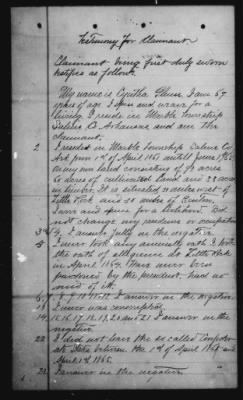 Testimony for Claimant.
Claimant being first duly sworn
testifies as follows.
My name is Cyntha Glenn, I am 67
years of age I spin and weave for a
living, I reside in Marble Township
Saline Co Arkansas and am the
claimant.
2 I resided in Marble Township Saline Co
Ark from 1st of April 1861 until June 1865
on my own land consisting of acres
6 acres of cultivated land and 33 acres
in timber. It is situated miles west of
Little Rock and 20 miles of Benton,
I farm and spin for a livelihood. Did
not change my residence or occupation
3 & 4, I answer fully in the negative
5 I never took any amnesty oath I took
the oath of allegiance at Little Rock
in April 1864. Have never been
pardoned by the president, had no
need of it.
6, 7, 8, 9, 10, 11, 12 I answer in the negative.
13 I never was
14, 15, 16, 17, 18, 19, 20 and 21 I answer in the
negative.
22 I did not leave the so called Confeder-
ate States between the 1st of April 1861 and
April 1st 1865.
23 I answer in the negative